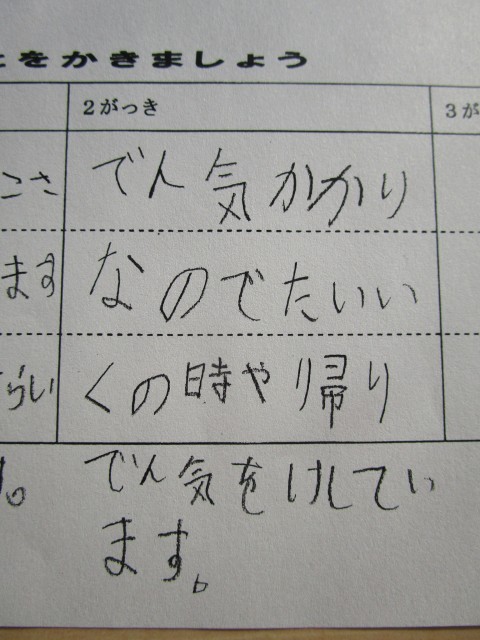 とをかきましょう
2がっき
3が
でん気かかり
なのでたいい
くの時や帰り
でん気をけしてい
ます。
こさ
ます
らい
。